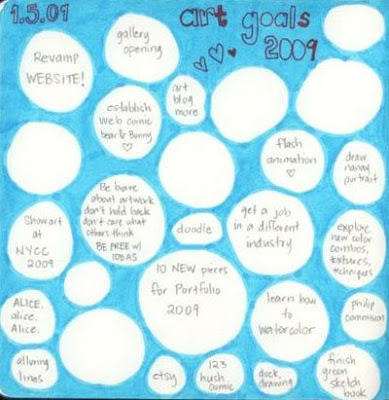 1.5.09
art goals
2009
Revamp
WEBSITE!
gallery
opening
art
blog
more
establish
web comic
bear & Bunny
flash
animation
draw
nanay
portrait
Be brave
about artwork
don't hold back
don't care what
others think
BE FREE w/
IDEAS
Show art
at
NYCC
2009
doodle
get a job
in a different
industry
explore
new color
combos,
textures,
techniques
10 NEW pieces
for Portfolio
2009
ALICE.
alice.
Alice.
learn how
to
watercolor
philip
commission
alluring
lines
etsy
123
hush
comic
duck
drawing
finish
green
sketch
book